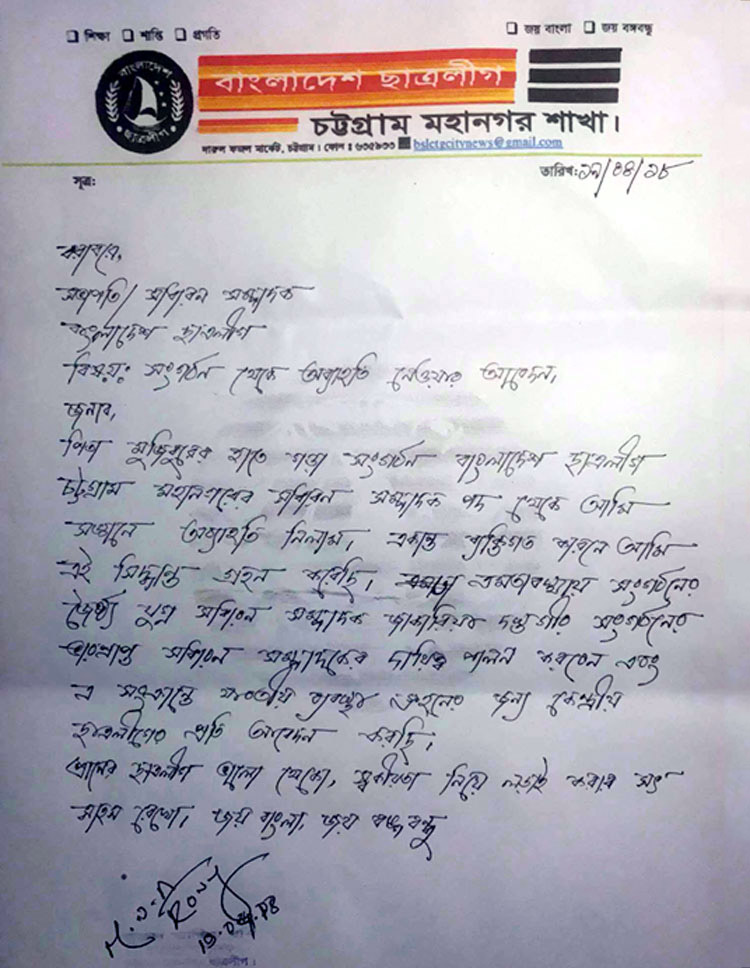 শিক্ষা শান্তি প্রগতি
জয় বাংলা জয় বঙ্গবন্ধু
বাংলাদেশ ছাত্রলীগ
বাংলাদেশ ছাত্রলীগ
চট্টগ্রাম মহানগর শাখা।
দারুল ফজল মার্কেট, চট্টগ্রাম। ফোন : ৬৩৫৯৩৩ bslctgcitynews@gmail.com
সূত্র: তারিখ:১৯/০৪/১৮
বরাবরে,
সভাপতি/ সাধারন সম্পাদক
বাংলাদেশ ছাত্রলীগ
বিষয়: সংগঠন থেকে অব্যাহতি নেওয়ার আবেদন,
জনাব,
পিতা মুজিবুরের হাতে গড়া সংগঠন বাংলাদেশ ছাত্রলীগ
চট্টগ্রাম মহানগরের সাধারন সম্পাদক পদ থেকে আমি
সজ্ঞানে অব্যাহতি নিলাম, একান্ত ব্যক্তিগত কারনে আমি
এই সিদ্ধান্ত গ্রহন করেছি, এমতাবস্থায় সংগঠনের
যুগ্ন সাধারন সম্পাদক জাকারিয়া দস্তগীর সংগঠনের
ভারপ্রাপ্ত সাধারন সম্পাদকের দায়িত্ব পালন করবেন এবং
এ সংক্রান্তে যাবতীয় ব্যবস্থা গ্রহনের জন্য কেন্দ্রীয়
ছাত্রলীগের প্রতি আবেদন করছি,
প্রানের ছাত্রলীগ ভালো থেকো, স্বকীয়তা নিয়ে লড়াই করার সৎ
সাহস রেখো, জয় বাংলা, জয় বঙ্গবন্ধু
RONY
ছাত্রলীগ।